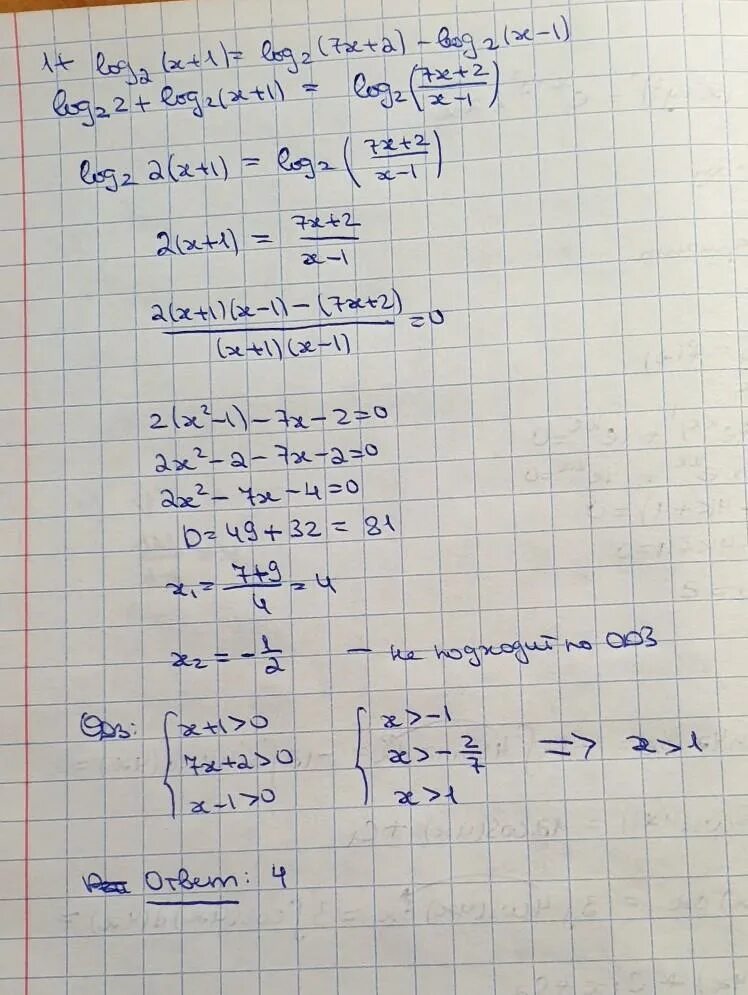 1+ log₂(x+1) = log₂(7x+2) - log₂(x-1)
log₂2 + log₂(x+1) = log₂((7x+2)/(x-1))
log₂ 2(x+1) = log₂((7x+2)/(x-1))
2(x+1) = (7x+2)/(x-1)
(2(x+1)(x-1) - (7x+2))/((x+1)(x-1)) = 0
2(x²-1) - 7x - 2 = 0
2x² - 2 - 7x - 2 = 0
2x² - 7x - 4 = 0
D = 49 + 32 = 81
x₁ = (7+9)/4 = 4
x₂ = -1/2 — не подходит по ОДЗ
ОДЗ: { x+1>0 { x>-1
7x+2>0 x>-2/7 => x>1
x-1>0 x>1
Ответ: 4